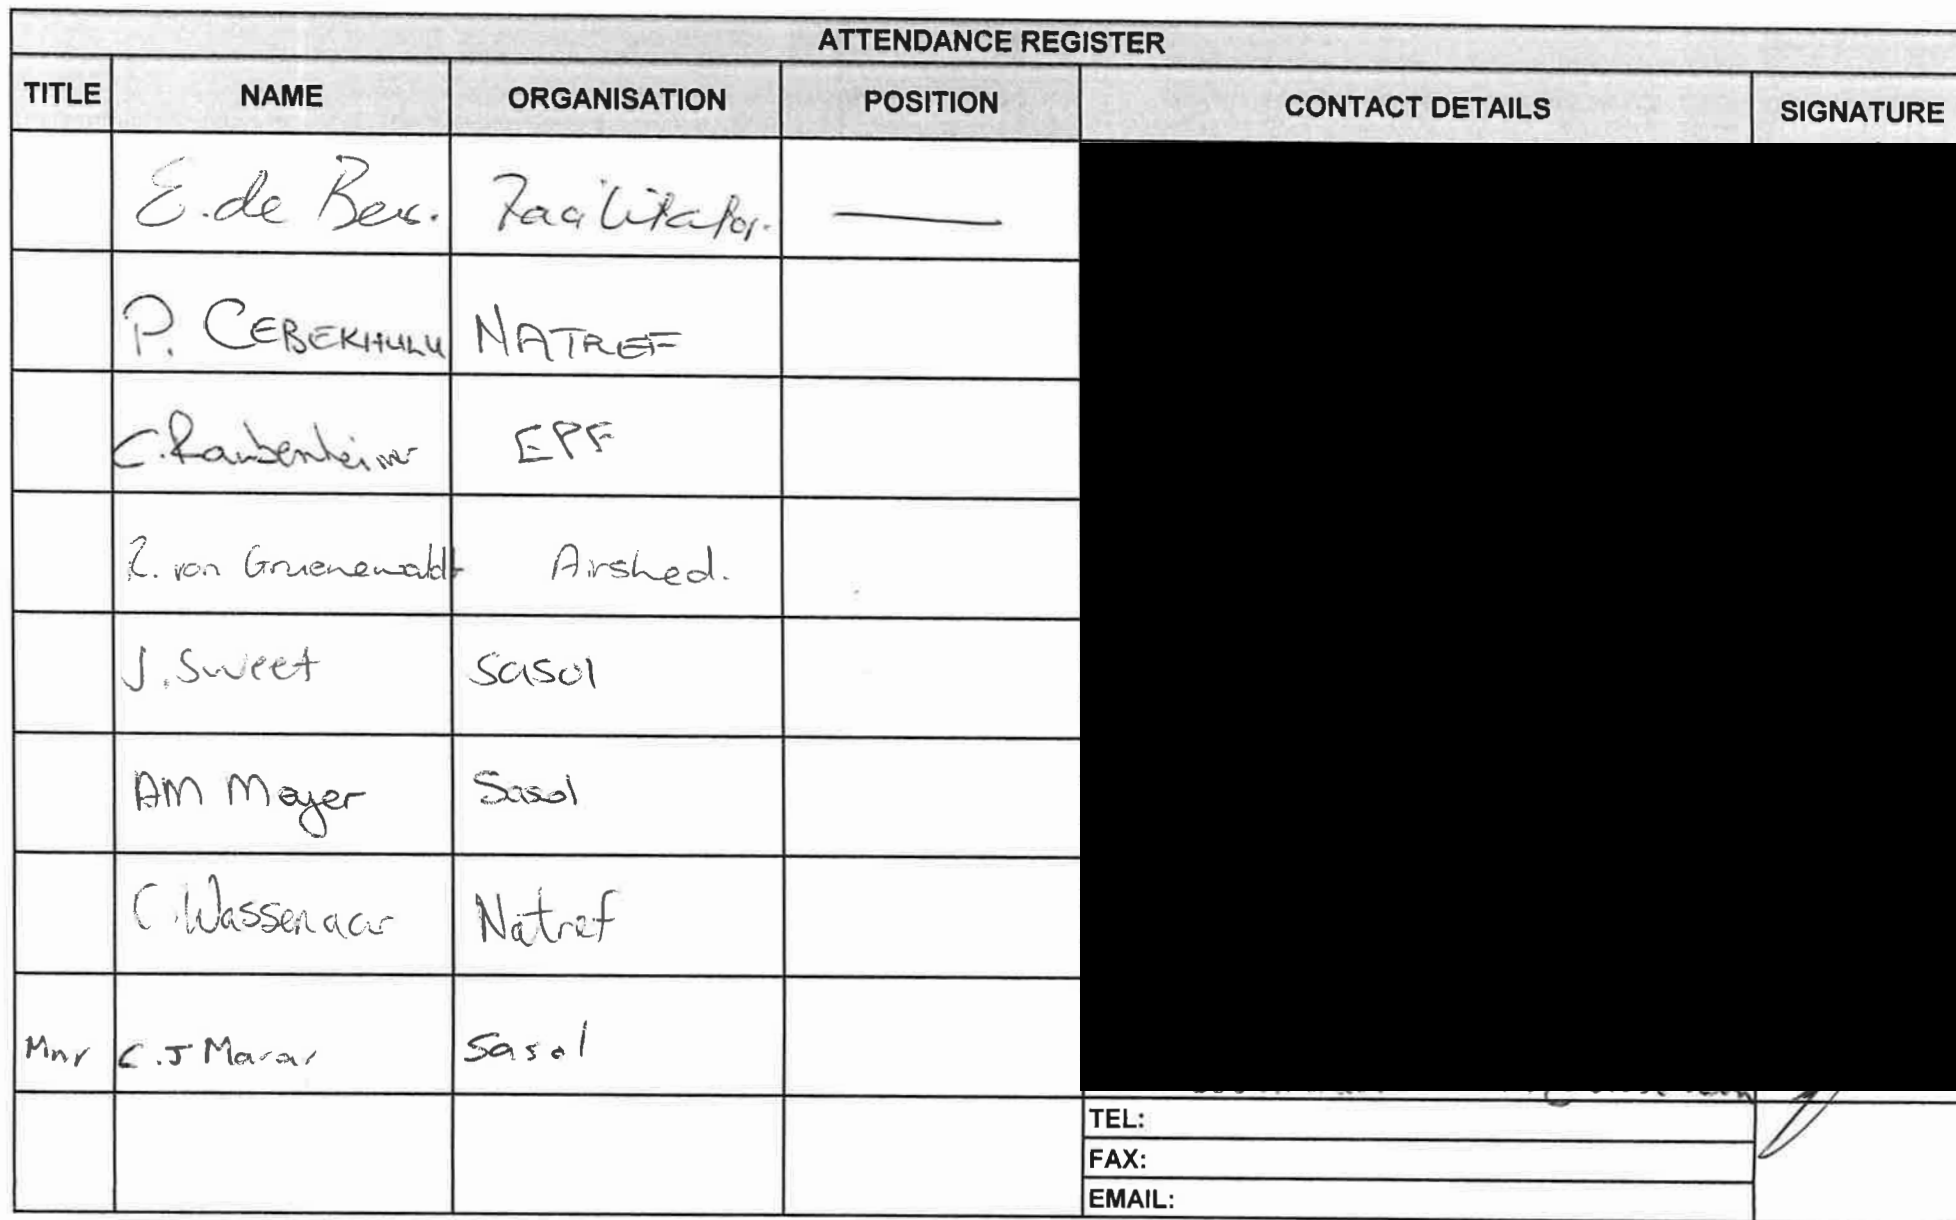 ATTENDANCE REGISTER
TITLE NAME ORGANISATION POSITION CONTACT DETAILS SIGNATURE
E. de Facilitator. —
P. CEBEKHULU NATREF
C. Raubenheimer EPF
von Gruenewaldt Airshed.
J. Sweet Sasol
AM Mayer Sasol
C. Wassenaar Natref
Mnr C.J Sasol
TEL:
FAX:
EMAIL: